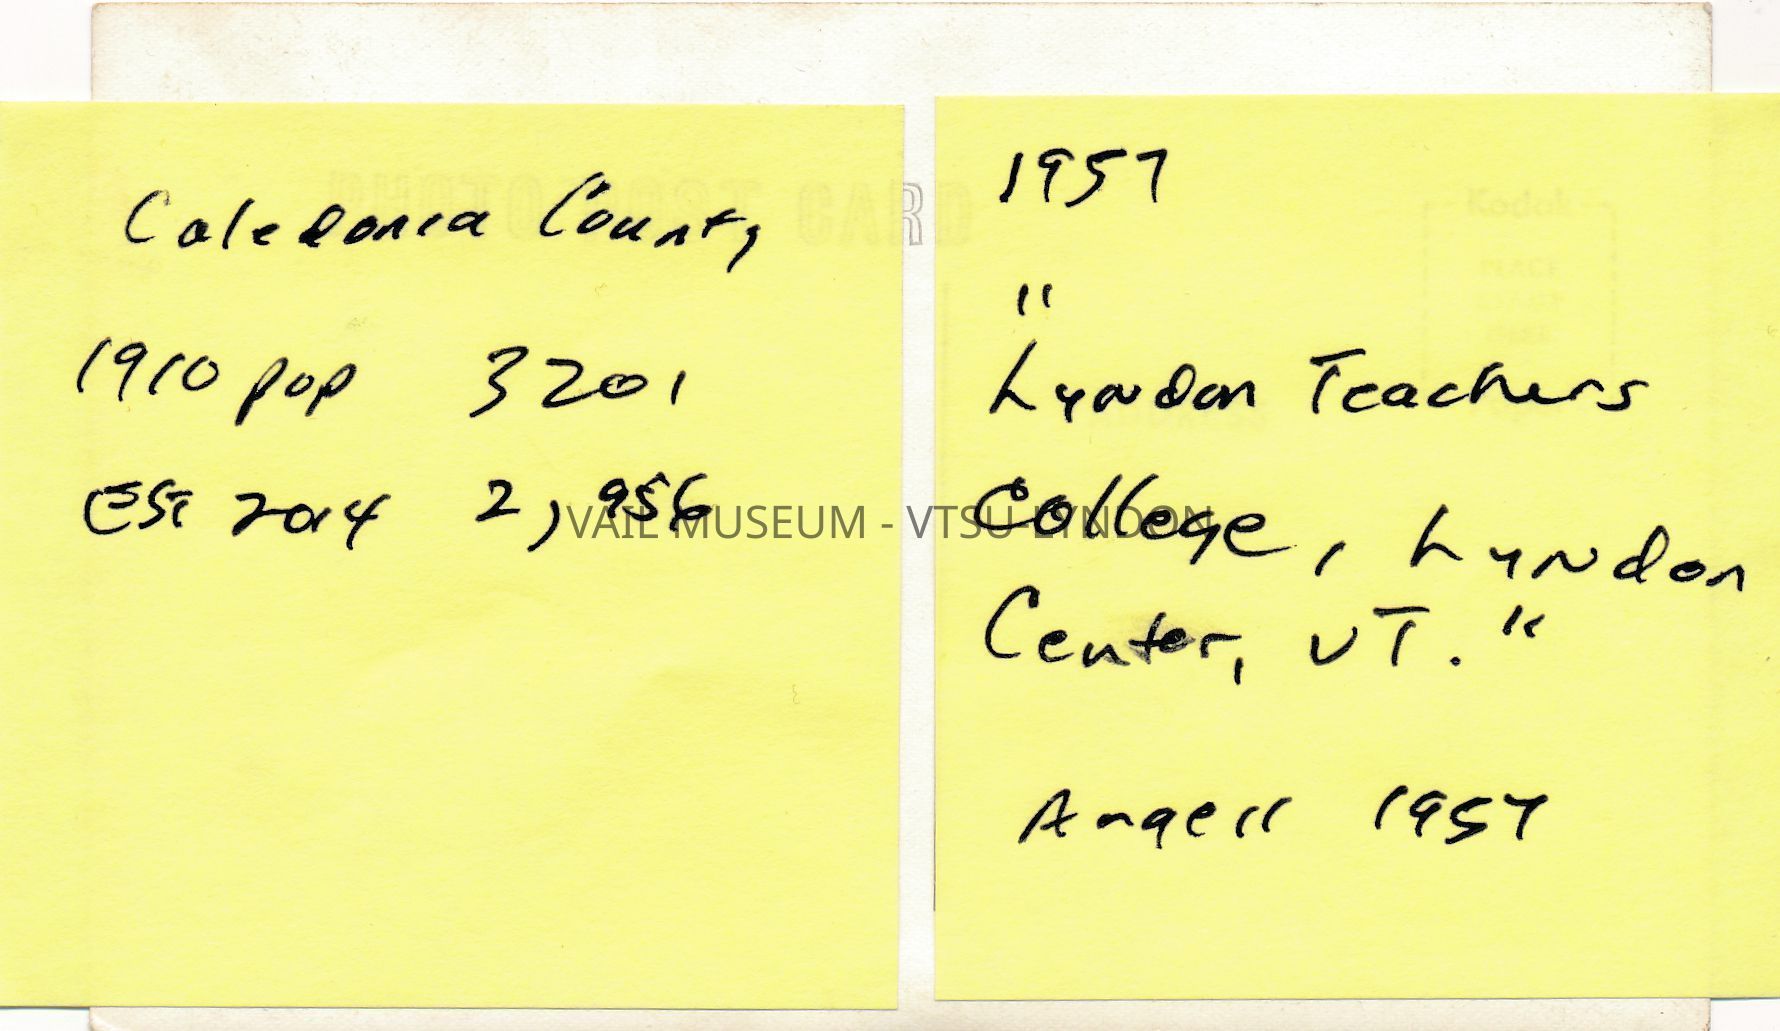 PHOTO POST CARD
Caledonia County
1910 pop 3201
EST 2014 2,956
Kodak
PLACE
STAMP
HERE
1957
"
Lyndon Teachers
College, Lyndon
Center, VT."
Angell 1957
VAIL MUSEUM - VTSU-LYNDON